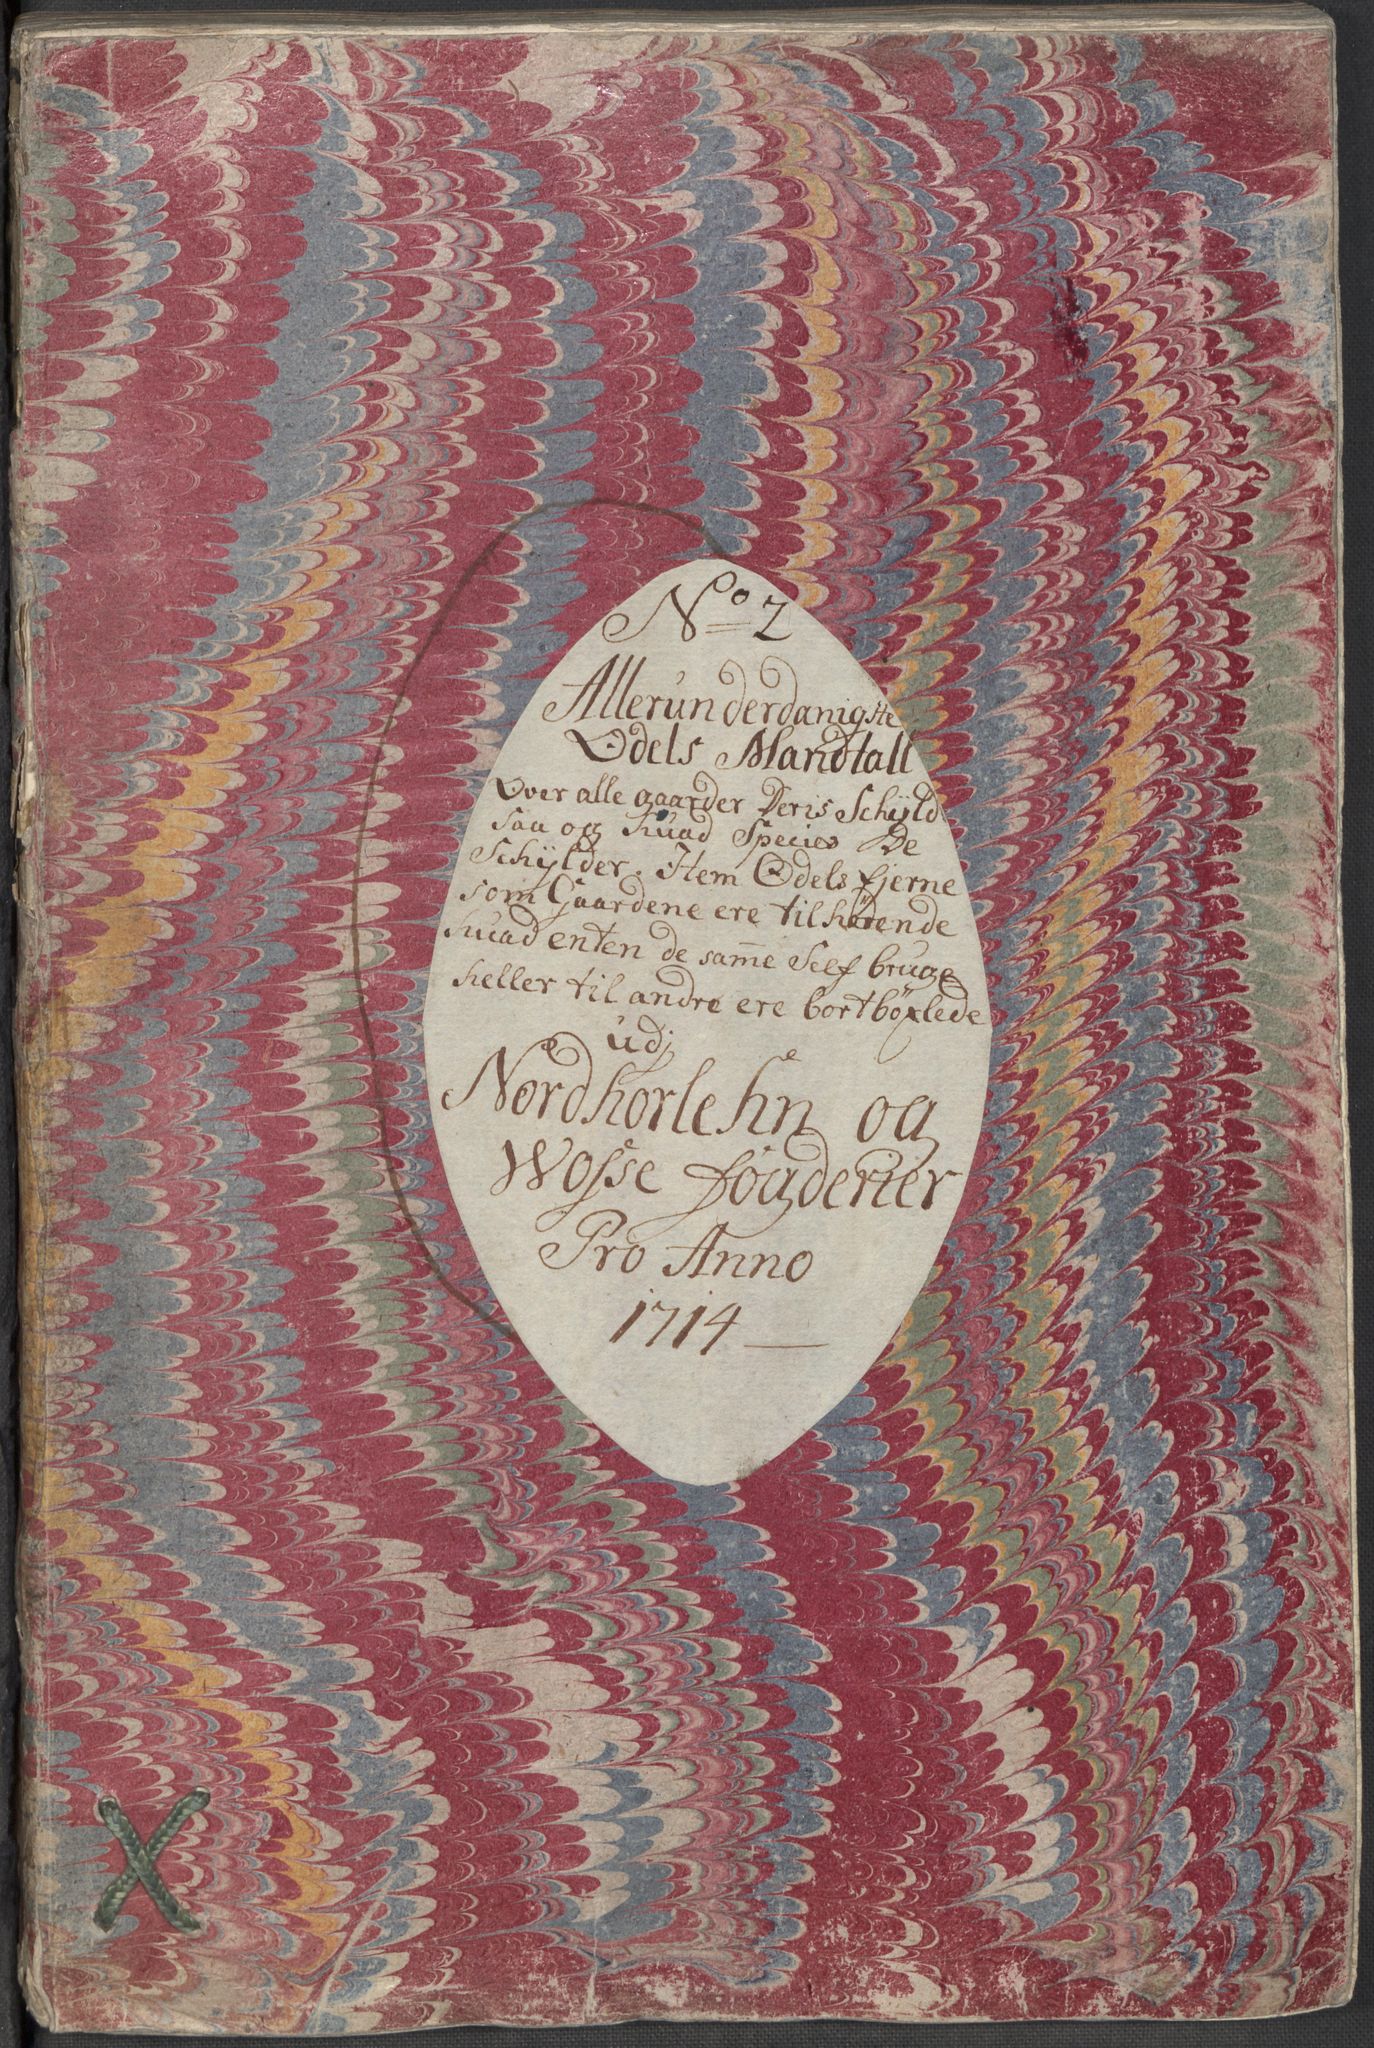 No 2
Allerunderdanigste
Odels Mandtall
Over alle gaarder Deris Schÿld
saa og huad Species De
Schÿlder. Item Odels Ejerne
som Gaardene ere tilhørende
huad enten de samme self bruge
heller til andre ere bortböxlede
udj
Nordhorlehn og
Wosse fogderier
Pro Anno
1714